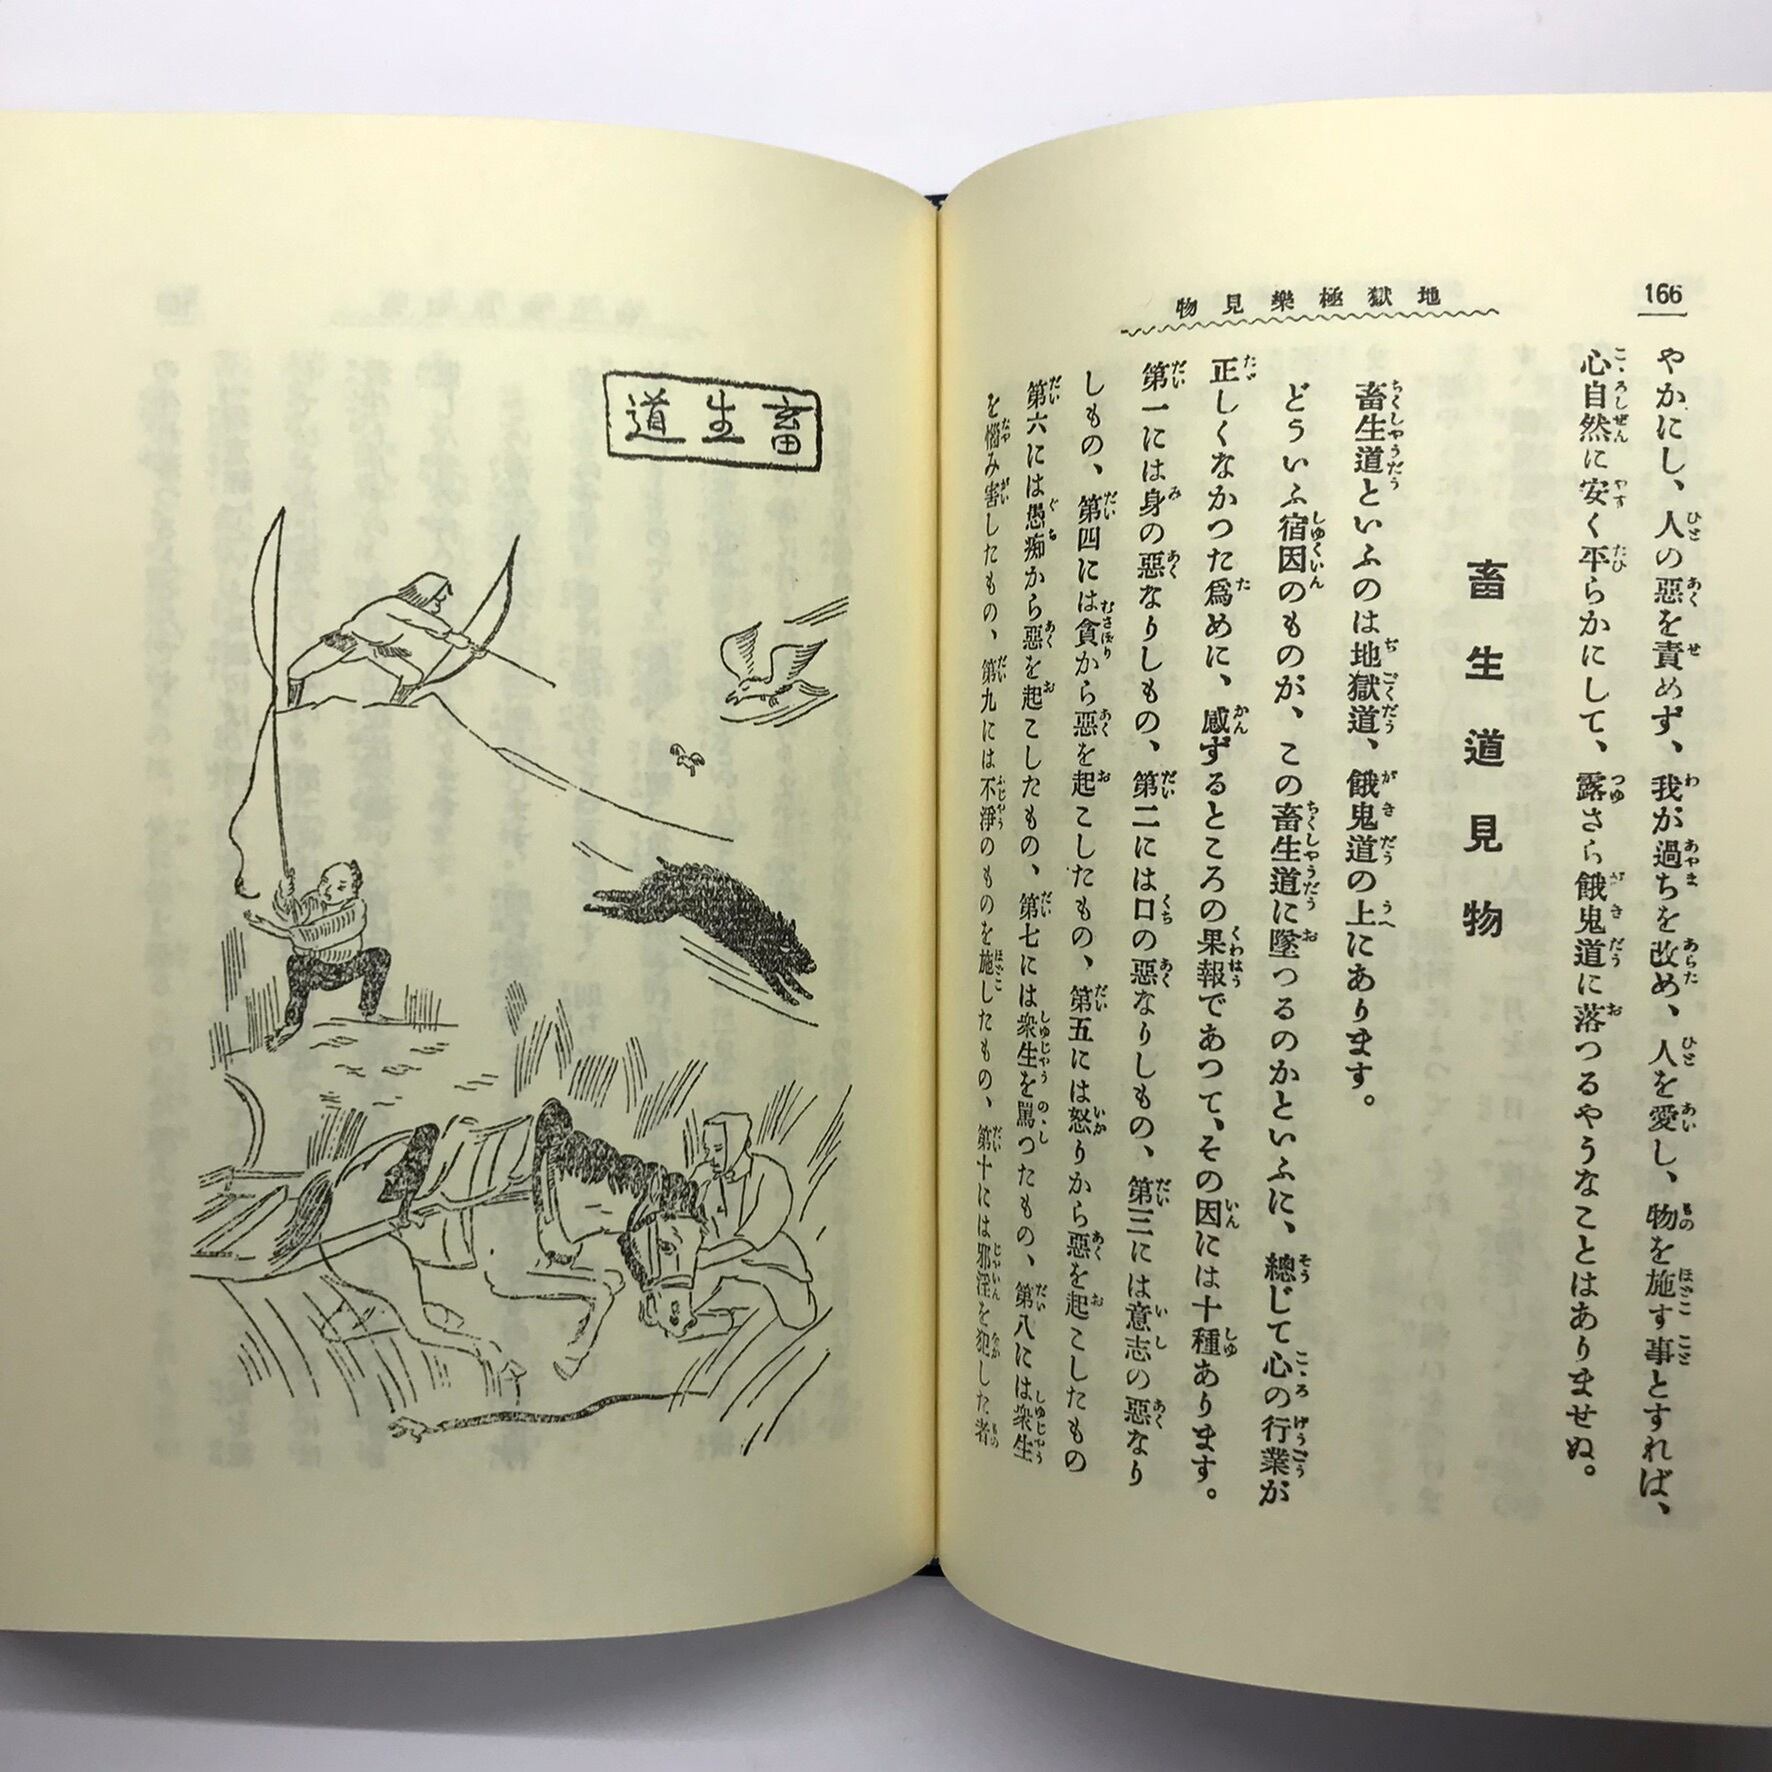 166
地獄極樂見物
やかにし、人の惡を責めず、我が過ちを改め、人を愛し、物を施す事とすれば、
心自然に安く平らかにして、露さら餓鬼道に落つるやうなことはありませぬ。
畜生道見物
畜生道といふのは地獄道、餓鬼道の上にあります。
どういふ宿因のものが、この畜生道に墜つるのかといふに、總じて心の行業が
正しくなかつた爲めに、感ずるところの果報であつて、その因には十種あります。
第一には身の惡なりしもの、第二には口の惡なりしもの、第三には意志の惡なり
しもの、第四には貪から惡を起こしたもの、第五には怒りから惡を起こしたもの
第六には愚痴から惡を起こしたもの、第七には衆生を罵つたもの、第八には衆生
を惱み害したもの、第九には不淨のものを施したもの、第十には邪淫を犯した者
畜生道